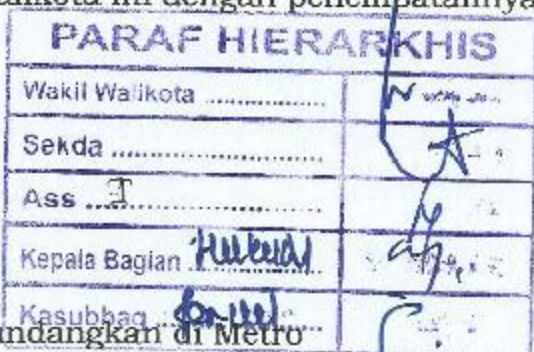 ini dengan penempatannya
PARAF HIERARKHIS
Wakil Walikota ....................
Sekda ........................................
Ass I ........................................
Kepala Bagian Hukum
Kasubbag
undangkan di Metro